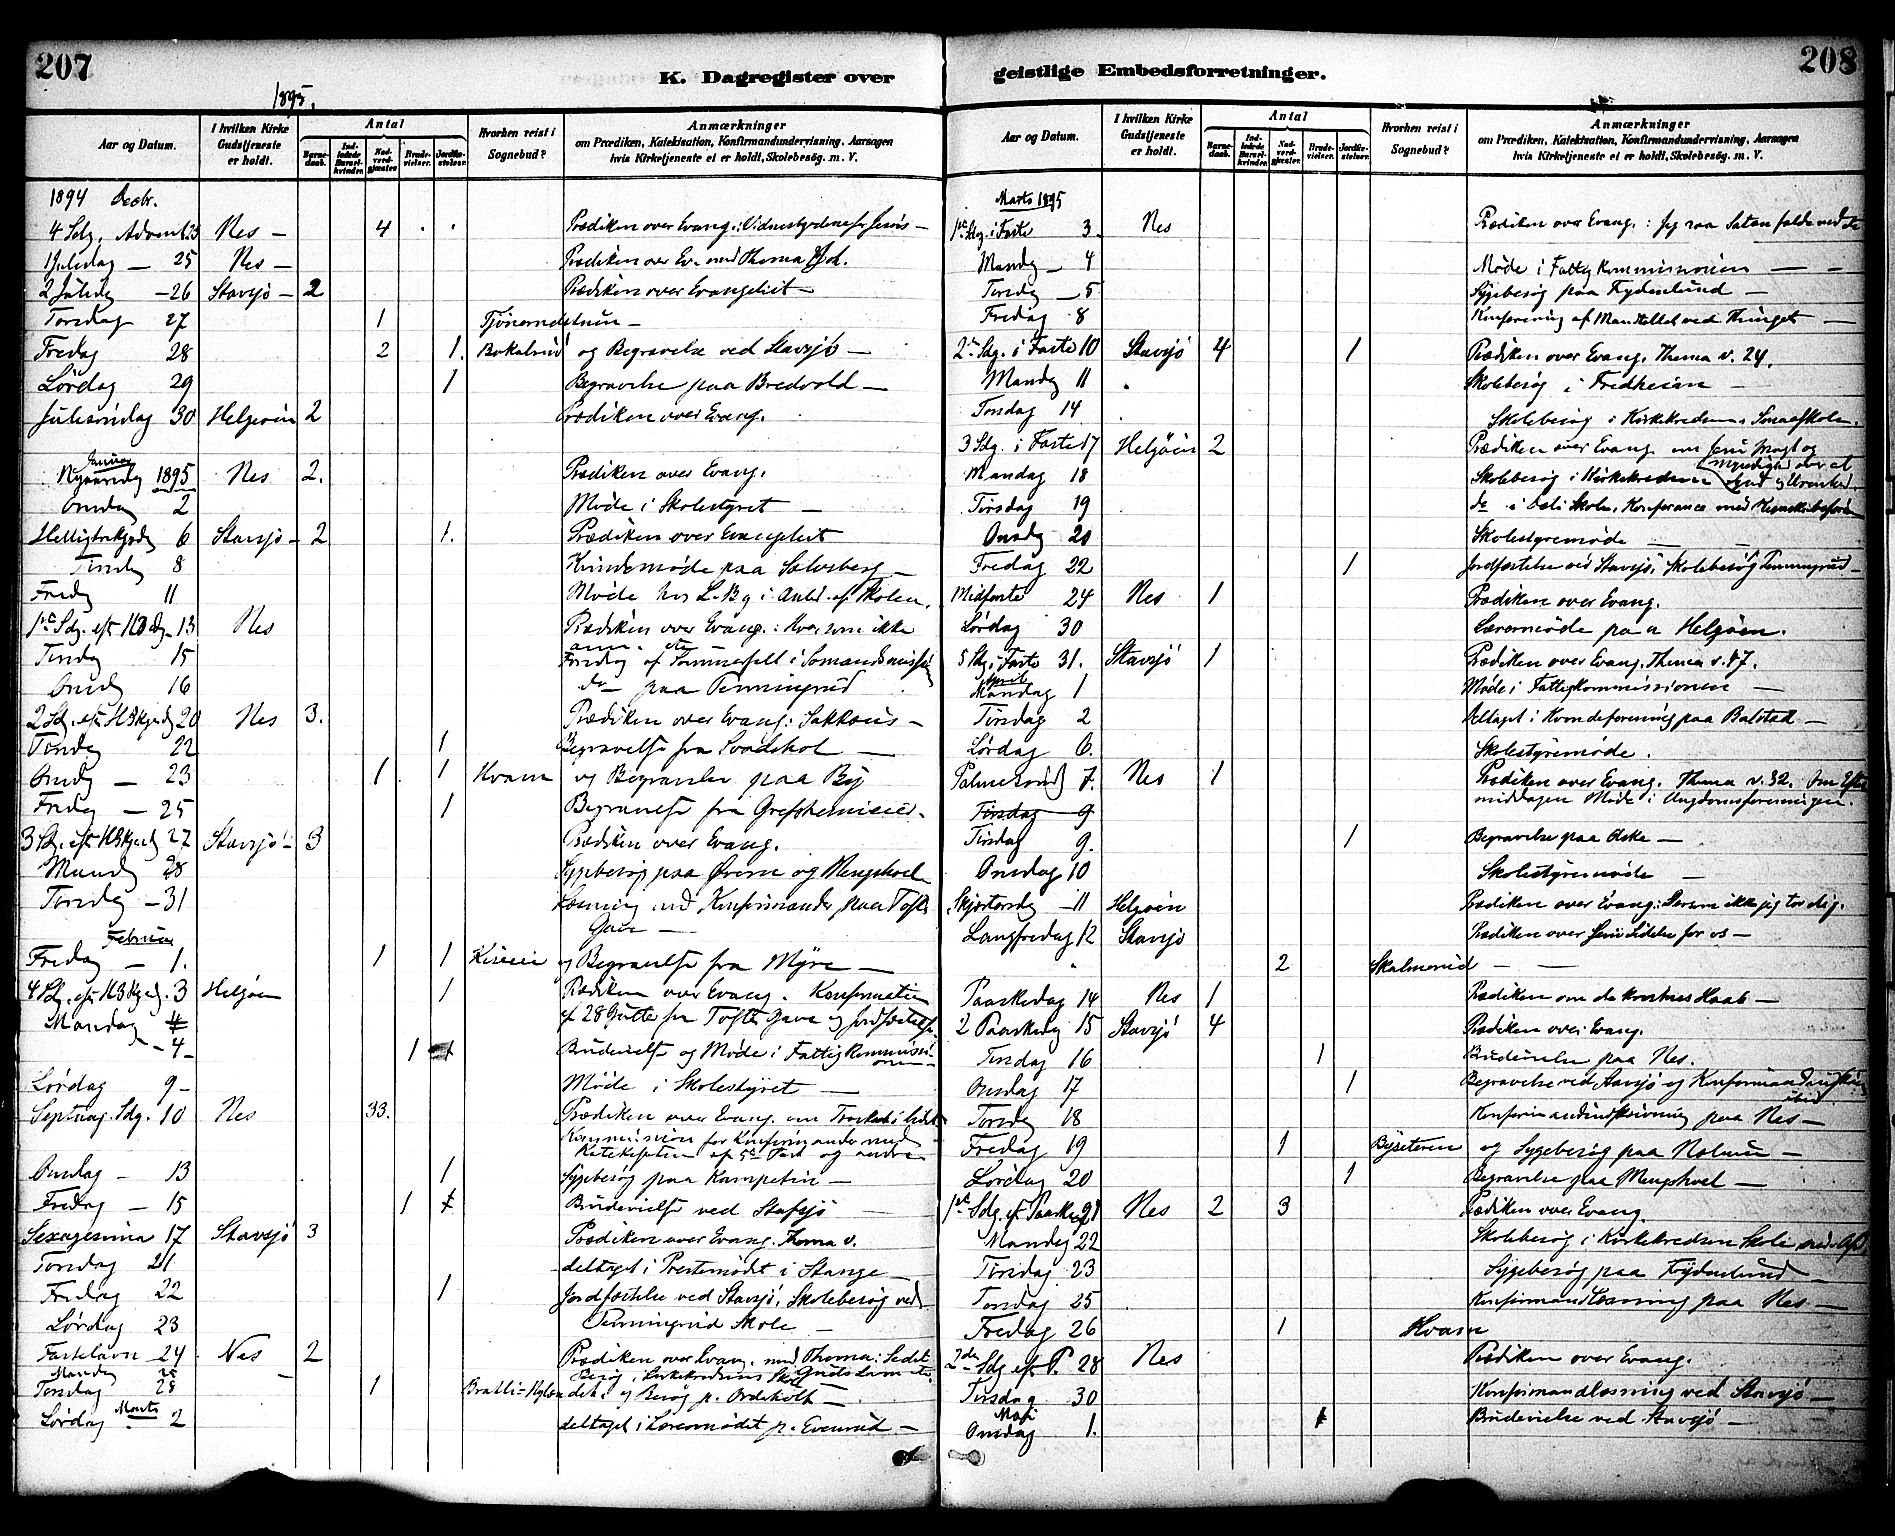 207
K. Dagregister over
1895.
Aar og Datum. I hvilken Kirke Gudstjeneste er holdt. Antal Barnedaab. Indledede Barselkvinder. Nadverdgjæster. Brudevielser. Jordfæstelser. Hvorhen reist i Sognebud? Anmærkninger om Prædiken, Katekisation, Konfirmandundervisning, Aarsagen hvis Kirketjeneste ei er holdt, Skolebesøg. m. V.
1894 Decbr.
4 Sdg. Advent 23 Nes - 4 Prædiken over Evang.:
1 Juledag - 25 Nes - Prædiken over Ev. med Thema
2 Juledg - 26 Stavsjø - 2 Prædiken over Evangeliet -
Torsdag 27 1
Fredag 28 2 1. og Begravelse ved Stavsjø -
Lørdag 29 1 Begravelse paa Bredvold -
Julesøndag 30 Helgøen 2 Prædiken over Evang.
Januar
Nyaarsdg 1895 Nes 2. Prædiken over Evang.
Onsdag 2 Møde i Skolestyret -
Helligtrekgsdg 6 Stavsjø - 2 1. Prædiken over Evangeliet
Tirsdg 8 Kvindemøde paa
Fredg 11 Møde hos L. By i Anled. af Skolen.
1ste Sdg. eft HBDg. 13 Nes Prædiken over Evang.: Hver som ikke
ann. etc -
Tirsdg 15 Foredrag af Sommerfelt i Sømandsmission
Onsdg 16 do - paa Tenningrud
2 Sd. eft. H3Kgsdg 20 Nes 3. Prædiken over Evang: Sakkæus -
Tirsdg 22 1 Begravelse fra
Onsdg - 23 1 1 Kvam og Begravelse paa By
Fredag - 25 1 Begravelse fra
3 Sdg. eft H3Kgsdg 27 Stavsjø - 3 Prædiken over Evang.
Mandg 28 Sygebesøg paa og Mengshoel
Torsdg - 31 Læsning med Konfirmander paa Toftes
Gave -
Februar
Fredag - 1. 1 1 og Begravelse fra Myre -
4 Sdg. eft H3Kgsdg. 3 Helgøen 1 Prædiken over Evang. Konfirmation
af 28 Gutte fra Toftes Gave og Jordfæstelse.
Mandag 4
- 4 - 1 Brudevielse og Møde i Fattigkommissi-
onen -
Lørdag 9 - Møde i Skolestyret -
Septuag. Sdg. 10 Nes 33. Prædiken over Evang. om
Kommunion for Konfirmander med
Katekisation af 5te Part og andre
Onsdag - 13 1 Sygebesøg paa
Fredag - 15 1 Brudevielse ved Stafsjø
Sexagesima 17 Stavsjø 3 Prædiken over Evang. Thema v.
Torsdag 21 deltaget i Prestemødet i Stange -
Fredag 22 1 Jordfæstelse ved Stavsjø, Skolebesøg ved
Lørdag 23 Tenningrud Skole -
Fastelavn - 24 Nes 2 Prædiken over Evang. med Thema:
Mandg 25 Besøg i Kirkekredsens Skole
Torsdag 28 1
Marts
Lørdag - 2 deltaget i Lærermødet p. Evenrud -
208
geistlige Embedsforretninger.
Aar og Datum. I hvilken Kirke Gudstjeneste er holdt. Antal Barnedaab. Indledede Barselkvinder. Nadverdgjæster. Brudevielser. Jordfæstelser. Hvorhen reist i Sognebud? Anmærkninger om Prædiken, Katekisation, Konfirmandundervisning, Aarsagen hvis Kirketjeneste ei er holdt, Skolebesøg. m. V.
Marts 1895
1ste Sdg. i Faste 3. Nes Prædiken over Evang.: Jeg saa Satan falde ned etc
Mandg - 4 Møde i Fattigkommissionen -
Tirsdg - 5 Sygebesøg paa Frydenlund -
Fredag 8 Konferering af Mandtallet ved Thinget -
2den Sdg. i Faste 10 Stavsjø 4 1 Prædiken over Evang. Thema v. 24.
Mandg 11 Skolebesøg i Fredheim -
Torsdag 14 Skolebesøg i Kirkekredsens Smaaskole.
3 Sdg. i Faste 17 Helgøen 2 Prædiken over Evang. om Jesu Magt og
Mandag 18 Skolebesøg i Kirkekredsen
Tirsdag 19 do i Skole, Konferance med
Onsdg 20 Skolestyremøde -
Fredag 22 1 Jordfæstelse ved Stavsjø, Skolebesøg Tenningrud -
Midfaste 24 Nes 1 Prædiken over Evang.
Lørdag 30 Læremøde paa Helgøen.
5 Sdg i Faste 31. Stavsjø 1 Prædiken over Evang. Thema v. 47.
April
Mandag 1 Møde i Fattigkommissionen -
Tirsdag 2 deltaget i Kvindeforening paa Balstad -
Lørdag 6. Skolestyremøde.
Palmesøndg 7. Nes 1 Prædiken over Evang. Thema v. 32. Om Efter
middagen Møde i Ungdomsforeningen.
Tirsdag 9
Tirsdag 9. 1 Begravelse paa -
Onsdag 10 Skolestyremøde -
Skjærtorsdg - 11 Helgøen Prædiken over Evang: Dersom ikke jeg toer dig.
Langfredag 12 Stavsjø Prædiken over Jesu Lidelse for os -
" 2 Skalmerud - -
Paaskedag 14 Nes 1 Prædiken om de kristnes Haab -
2 Paaskedg 15 Stavsjø 4 Prædiken over Evang.
Tirsdag 16 1 Brudevielse paa Nes.
Onsdag 17 1 Begravelse ved Stavsjø og
Torsdg 18 Konfirmandindskrivning paa Nes -
Fredag 19 1 Byseteren og Sygebesøg paa
Lørdag 20 1 Begravelse paa Mengshoel -
1ste Sdg. ef. Paaske 21 Nes 2 3 Prædiken over Evang.
Mandag 22 Skolebesøg i Kirkekredsen Skole
Tirsdag 23 Sygebesøg paa Frydenlund -
Torsdag 25 Konfirmandlæsning paa Nes -
Fredag 26 1 Kvam
2den Sdg. eft P. 28 Nes Prædiken over Evang.
Tirsdag 30 Konfirmandlæsning ved Stavsjø -
Mai
Onsdag 1. 1 Brudevielse ved Stavsjø -